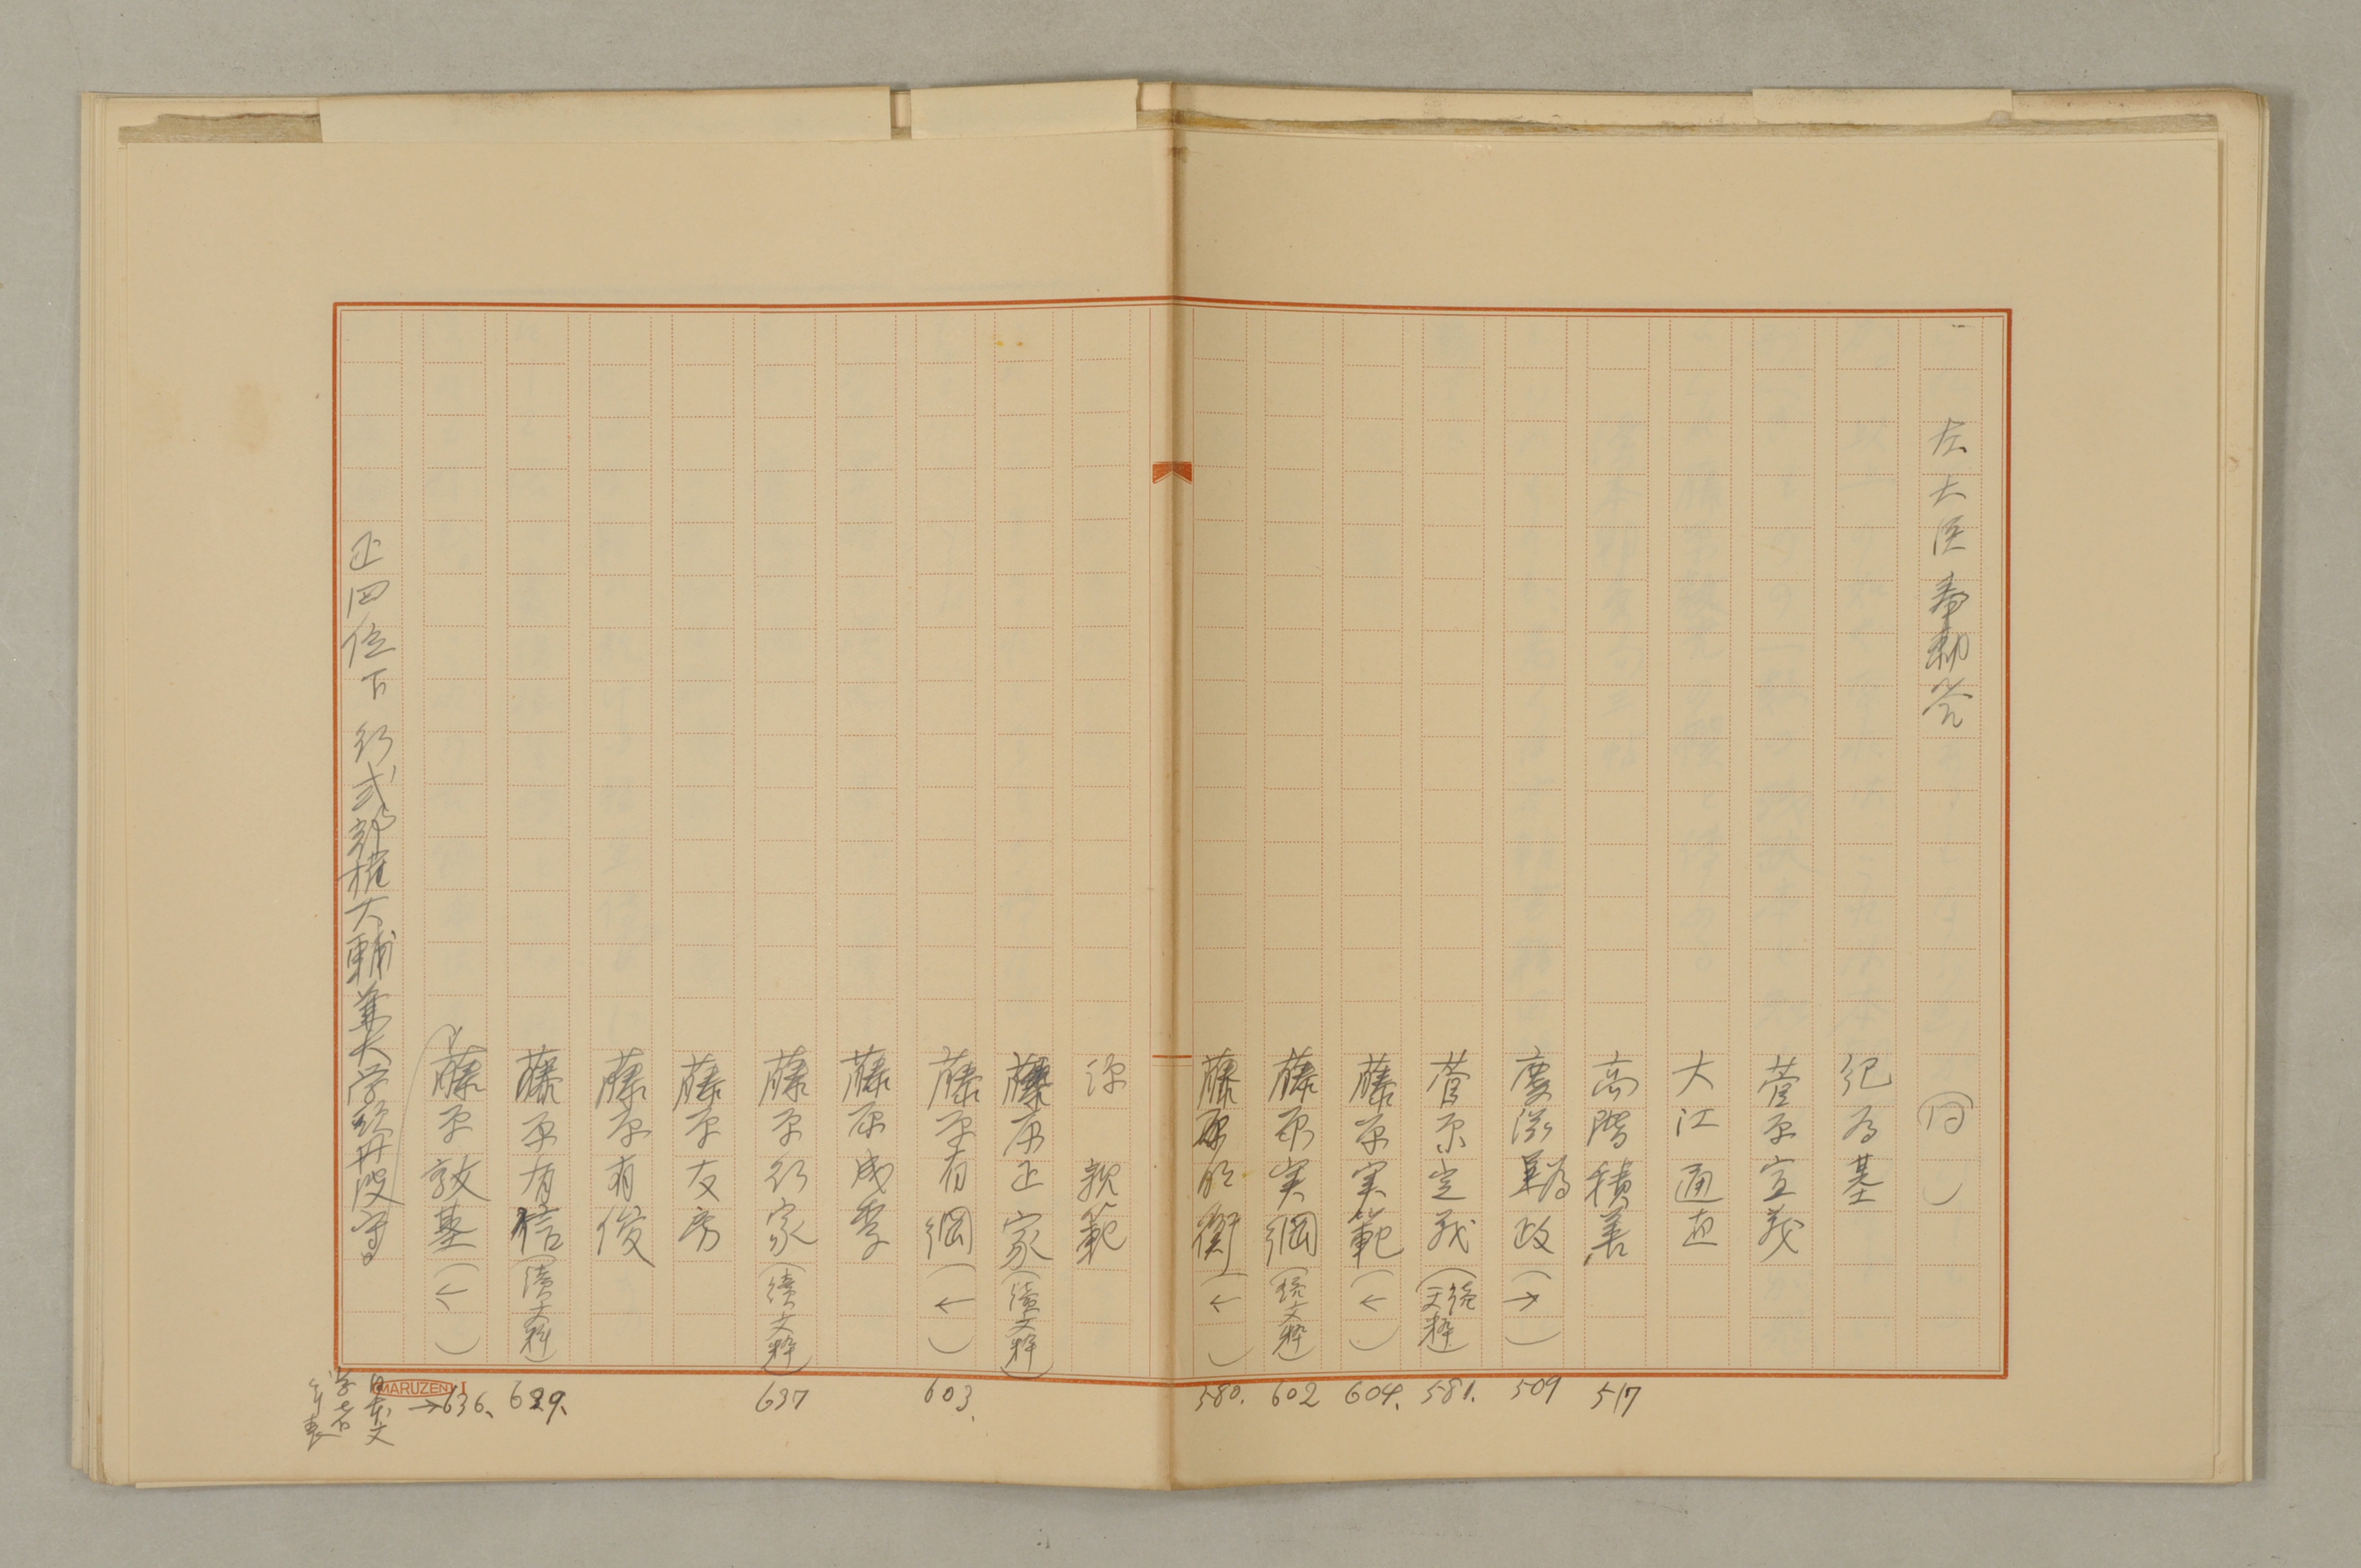 左大臣奉勅登 (同)
紀為基
菅原宣義
大江通直
高階積善
慶滋為政(→) 509
517
菅原定義(続文粋) 581.
藤原実範(←) 604.
藤原実綱(続文粋) 602
藤原明衡(←) 580.
源親範
藤原正家(續文粋)
藤原有綱(←) 603.
藤原成季
藤原行家(續文粋) 637
藤原友房
藤原有俊
藤原有信(續文粋) 629.
藤原敦基(←) →636.
正四位下行式部権大輔兼大学頭丹波守
日本文
学者
年表
MARUZEN I